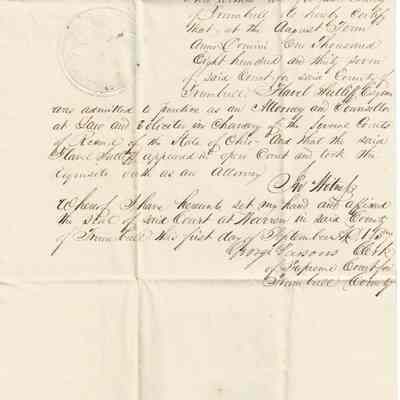 of Trumbull do hereby certify
that at the August Term
Anno Domini One Thousand
Eight hundred and thirty seven
of said Court for said County of
Trumbull Flavel Sutliff Esquire
was admitted to practice as an Attorney and Counsellor
at Law and Solicitor in Chancery of the several Courts
of Record of the State of Ohio - And that the said
Flavel Sutliff appeared in open Court and took the
requisite oath as an Attorney
In Witness
Whereof I have hereunto set my hand and affixed
the seal of said Court at Warren in said County
of Trumbull this first day of September AD
George Parsons Clerk
of Supreme Court for
Trumbull County